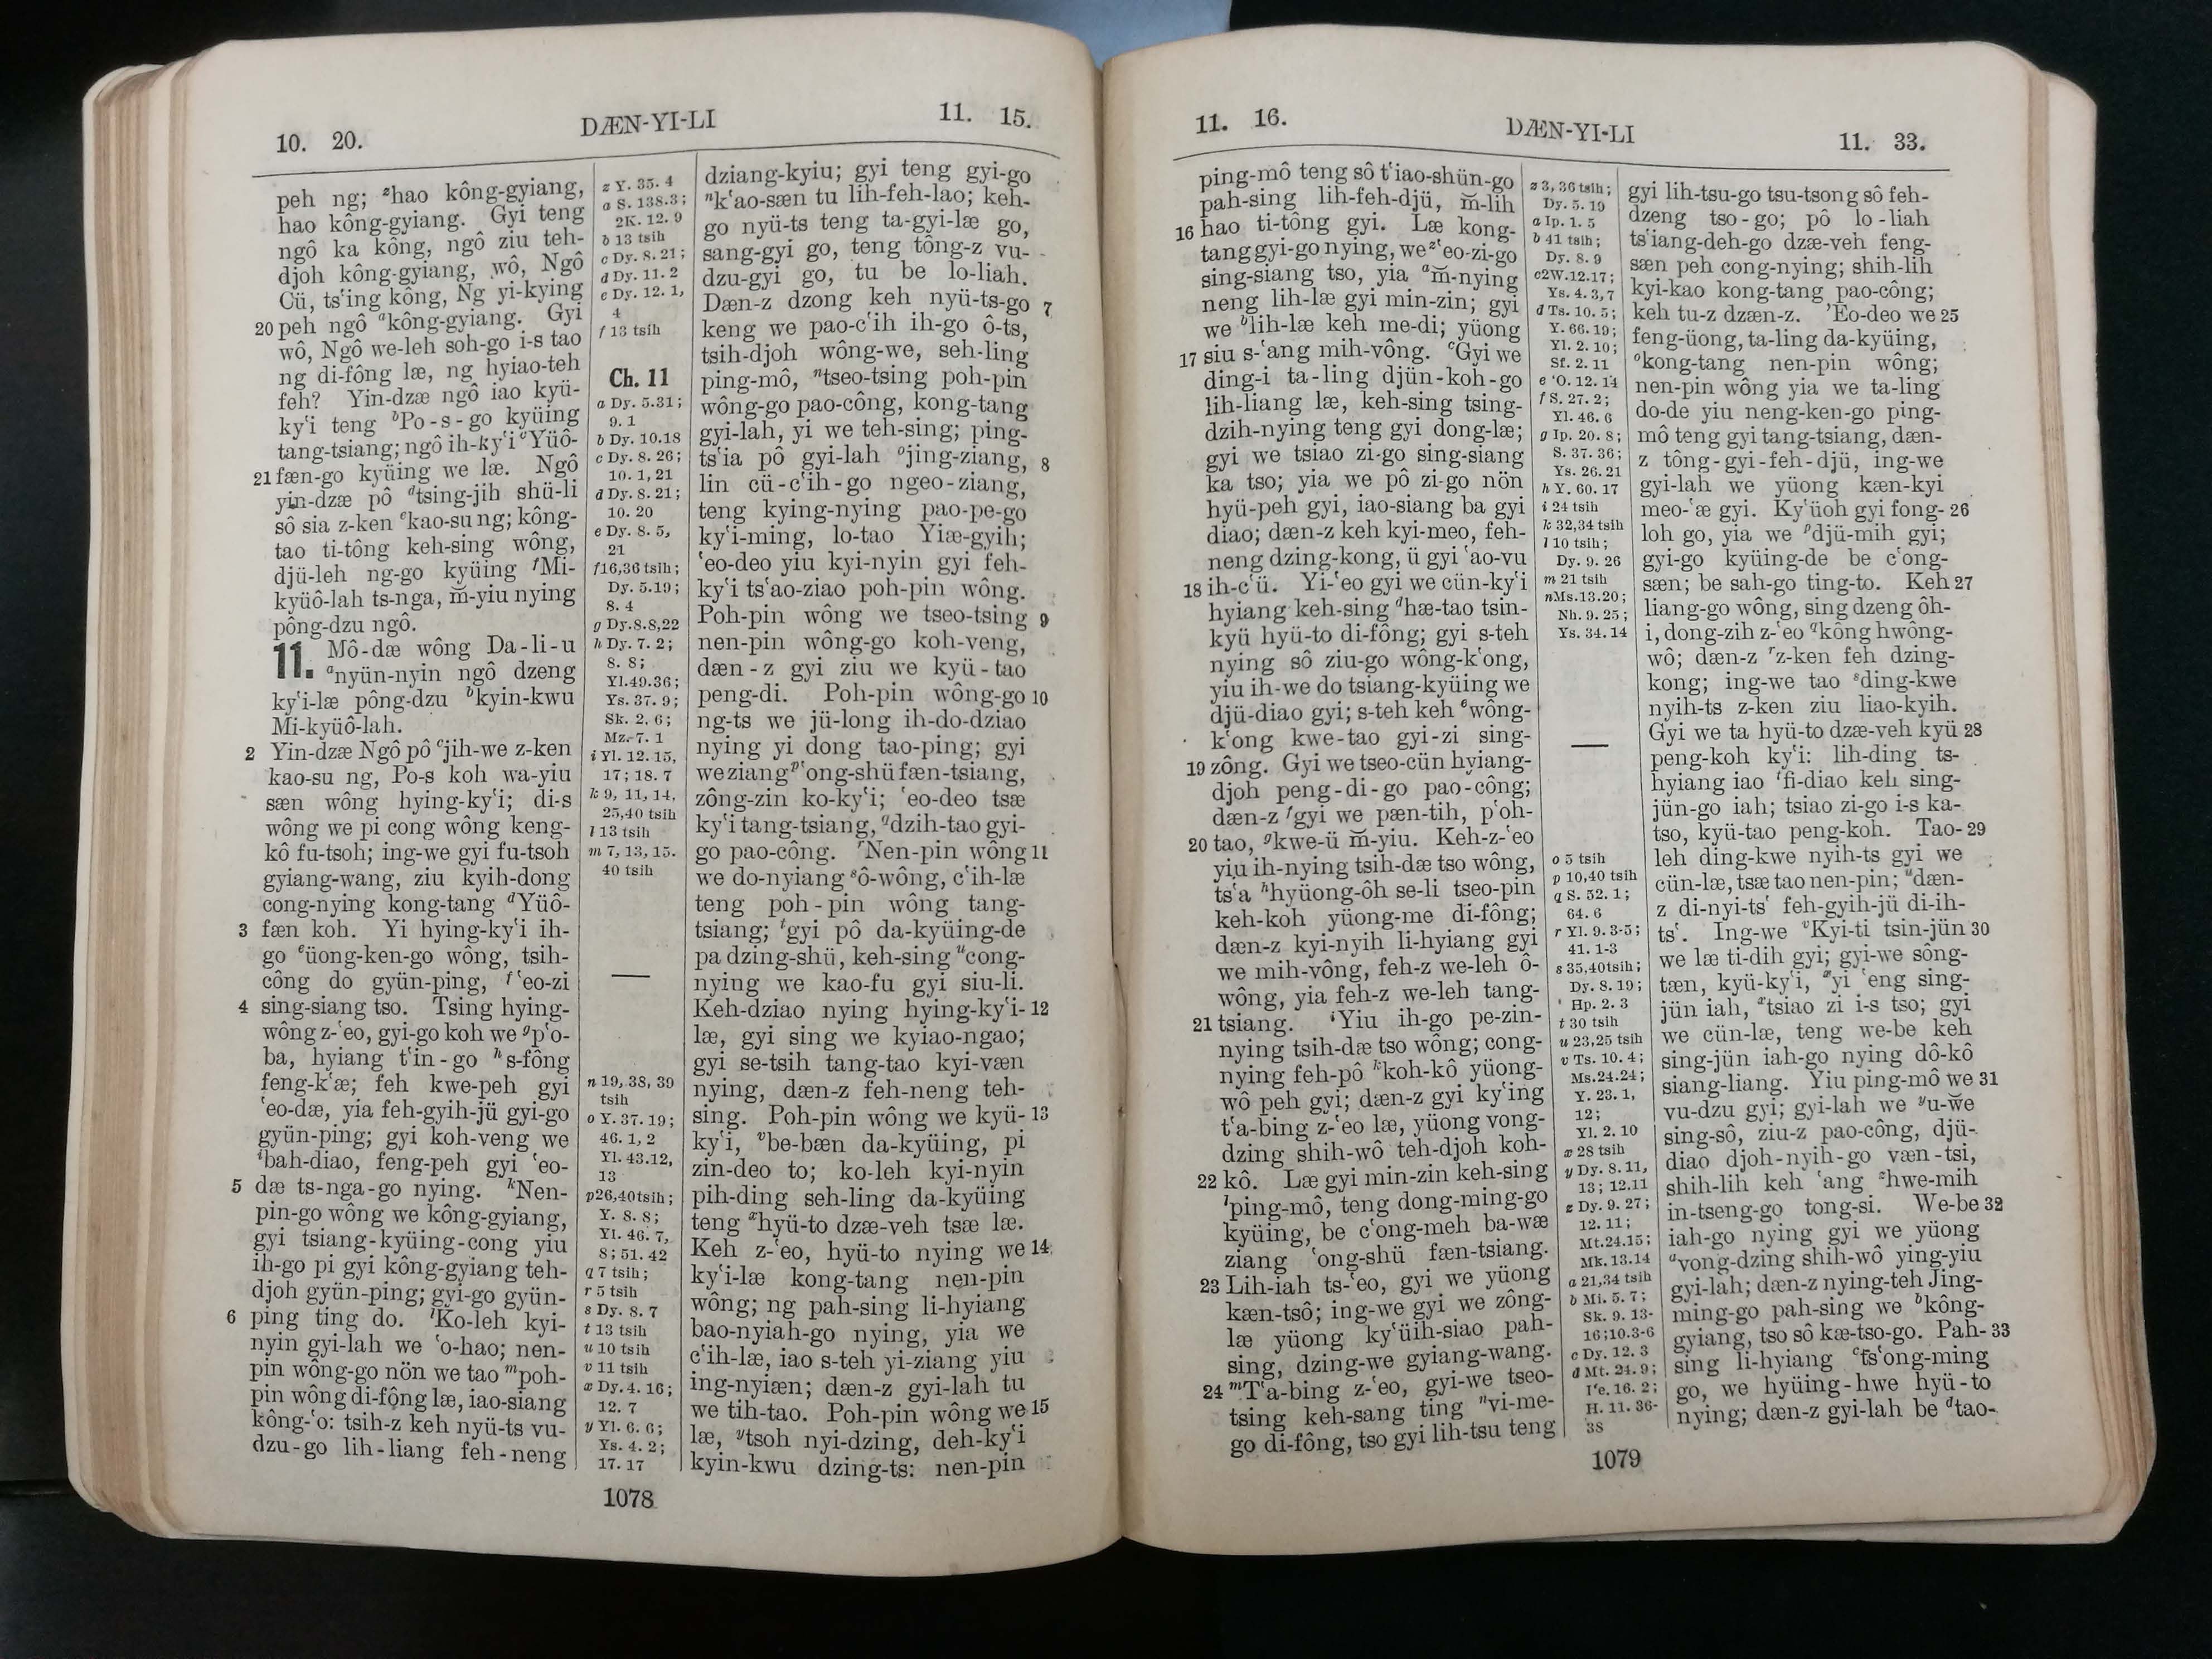 10. 20.
DÆN-YI-LI
11. 15.
peh ng; ᶻhao kông-gyiang,
hao kông-gyiang. Gyi teng
ngô ka kông, ngô ziu teh-
djoh kông-gyiang, wô, Ngô
Cü, ts‘ing kông, Ng yi-kying
20 peh ngô ᵃkông-gyiang. Gyi
wô, Ngô we-leh soh-go i-s tao
ng di-fông læ, ng hyiao-teh
feh? Yin-dzæ ngô iao kyü-
ky‘i teng ᵇPo-s-go kyüing
tang-tsiang; ngô ih-ky‘i ᶜYüô-
21 fæn-go kyüing we læ. Ngô
yin-dzæ pô ᵈtsing-jih shü-li
sô sia z-ken ᵉkao-su ng; kông-
tao ti-tông keh-sing wông,
djü-leh ng-go kyüing ᶠMi-
kyüô-lah ts-nga, m̆-yiu nying
pông-dzu ngô.
11. Mô-dæ wông Da-li-u
ᵃnyün-nyin ngô dzeng
ky‘i-læ pông-dzu ᵇkyin-kwu
Mi-kyüô-lah.
2 Yin-dzæ Ngô pô ᶜjih-we z-ken
kao-su ng, Po-s koh wa-yiu
sæn wông hying-ky‘i; di-s
wông we pi cong wông keng-
kô fu-tsoh; ing-we gyi fu-tsoh
gyiang-wang, ziu kyih-dong
cong-nying kong-tang ᵈYüô-
3 fæn koh. Yi hying-ky‘i ih-
go ᵉüong-ken-go wông, tsih-
công do gyün-ping, ᶠ‘eo-zi
4 sing-siang tso. Tsing hying-
wông z-‘eo, gyi-go koh we ᵍp‘o-
ba, hyiang t‘in-go ʰs-fông
feng-k‘æ; feh kwe-peh gyi
‘eo-dæ, yia feh-gyih-jü gyi-go
gyün-ping; gyi koh-veng we
ⁱbah-diao, feng-peh gyi ‘eo-
5 dæ ts-nga-go nying. ᵏNen-
pin-go wông we kông-gyiang,
gyi tsiang-kyüing-cong yiu
ih-go pi gyi kông-gyiang teh-
djoh gyün-ping; gyi-go gyün-
6 ping ting do. ˡKo-leh kyi-
nyin gyi-lah we ‘o-hao; nen-
pin wông-go nön we tao ᵐpoh-
pin wông di-fông læ, iao-siang
kông-‘o: tsih-z keh nyü-ts vu-
dzu-go lih-liang feh-neng
z Y. 35. 4
a S. 138.3;
2K. 12. 9
b 13 tsih
c Dy. 8. 21;
d Dy. 11. 2
e Dy. 12. 1,
4
f 13 tsih
Ch. 11
a Dy. 5.31;
9. 1
b Dy. 10.18
c Dy. 8. 26;
10. 1, 21
d Dy. 8. 21;
10. 20
e Dy. 8. 5,
21
f 16,36 tsih;
Dy. 5.19;
8. 4
g Dy.8.8,22
h Dy. 7. 2;
8. 8;
Yl.49.36;
Ys. 37. 9;
Sk. 2. 6;
Mz. 7. 1
i Yl. 12. 15,
17; 18. 7
k 9, 11, 14,
25,40 tsih
l 13 tsih
m 7, 13, 15.
40 tsih
n 19, 38, 39
tsih
o Y. 37. 19;
46. 1, 2
Yl. 43.12,
13
p26,40tsih;
Y. 8. 8;
Yl. 46. 7,
8; 51. 42
q 7 tsih;
r 5 tsih
s Dy. 8. 7
t 13 tsih
u 10 tsih
v 11 tsih
x Dy. 4. 16;
12. 7
y Yl. 6. 6;
Ys. 4. 2;
17. 17
dziang-kyiu; gyi teng gyi-go
ⁿk‘ao-sæn tu lih-feh-lao; keh-
go nyü-ts teng ta-gyi-læ go,
sang-gyi go, teng tông-z vu-
dzu-gyi go, tu be lo-liah.
Dæn-z dzong keh nyü-ts-go 7
keng we pao-c‘ih ih-go ô-ts,
tsih-djoh wông-we, seh-ling
ping-mô, ⁿtseo-tsing poh-pin
wông-go pao-công, kong-tang
gyi-lah, yi we teh-sing; ping-
ts‘ia pô gyi-lah ᵒjing-ziang, 8
lin cü-c‘ih-go ngeo-ziang,
teng kying-nying pao-pe-go
ky‘i-ming, lo-tao Yiæ-gyih;
‘eo-deo yiu kyi-nyin gyi feh-
ky‘i ts‘ao-ziao poh-pin wông.
Poh-pin wông we tseo-tsing 9
nen-pin wông-go koh-veng,
dæn-z gyi ziu we kyü-tao
peng-di. Poh-pin wông-go 10
ng-ts we jü-long ih-do-dziao
nying yi dong tao-ping; gyi
we ziang ᵖ‘ong-shü fæn-tsiang,
zông-zin ko-ky‘i; ‘eo-deo tsæ
ky‘i tang-tsiang, ᑫdzih-tao gyi-
go pao-công. ʳNen-pin wông 11
we do-nyiang ˢô-wông, c‘ih-læ
teng poh-pin wông tang-
tsiang; ᵗgyi pô da-kyüing-de
pa dzing-shü, keh-sing ᵘcong-
nying we kao-fu gyi siu-li.
Keh-dziao nying hying-ky‘i- 12
læ, gyi sing we kyiao-ngao;
gyi se-tsih tang-tao kyi-væn
nying, dæn-z feh-neng teh-
sing. Poh-pin wông we kyü- 13
ky‘i, ᵛbe-bæn da-kyüing, pi
zin-deo to; ko-leh kyi-nyin
pih-ding seh-ling da-kyüing
teng ˣhyü-to dzæ-veh tsæ læ.
Keh z-‘eo, hyü-to nying we 14
ky‘i-læ kong-tang nen-pin
wông; ng pah-sing li-hyiang
bao-nyiah-go nying, yia we
c‘ih-læ, iao s-teh yi-ziang yiu
ing-nyiæn; dæn-z gyi-lah tu
we tih-tao. Poh-pin wông we 15
læ, ʸtsoh nyi-dzing, deh-ky‘i
kyin-kwu dzing-ts: nen-pin
1078
11. 16.
DÆN-YI-LI
11. 33.
ping-mô teng sô t‘iao-shün-go
pah-sing lih-feh-djü, m̆-lih
16 hao ti-tông gyi. Læ kong-
tang gyi-go nying, we ᶻ‘eo-zi-go
sing-siang tso, yia ᵃm̆-nying
neng lih-læ gyi min-zin; gyi
we ᵇlih-læ keh me-di; yüong
17 siu s-‘ang mih-vông. ᶜGyi we
ding-i ta-ling djün-koh-go
lih-liang læ, keh-sing tsing-
dzih-nying teng gyi dong-læ;
gyi we tsiao zi-go sing-siang
ka tso; yia we pô zi-go nön
hyü-peh gyi, iao-siang ba gyi
diao; dæn-z keh kyi-meo, feh-
neng dzing-kong, ü gyi ‘ao-vu
18 ih-c‘ü. Yi-‘eo gyi we cün-ky‘i
hyiang keh-sing ᵈhæ-tao tsin-
kyü hyü-to di-fông; gyi s-teh
nying sô ziu-go wông-k‘ong,
yiu ih-we do tsiang-kyüing we
djü-diao gyi; s-teh keh ᵉwông-
k‘ong kwe-tao gyi-zi sing-
19 zông. Gyi we tseo-cün hyiang-
djoh peng-di-go pao-công;
dæn-z ᶠgyi we pæn-tih, p‘oh-
20 tao, ᵍkwe-ü m̆-yiu. Keh-z-‘eo
yiu ih-nying tsih-dæ tso wông,
ts‘a ʰhyüong-ôh se-li tseo-pin
keh-koh yüong-me di-fông;
dæn-z kyi-nyih li-hyiang gyi
we mih-vông, feh-z we-leh ô-
wông, yia feh-z we-leh tang-
21 tsiang. ⁱYiu ih-go pe-zin-
nying tsih-dæ tso wông; cong-
nying feh-pô ᵏkoh-kô yüong-
wô peh gyi; dæn-z gyi ky‘ing
t‘a-bing z-‘eo læ, yüong vong-
dzing shih-wô teh-djoh koh-
22 kô. Læ gyi min-zin keh-sing
ˡping-mô, teng dong-ming-go
kyüing, be c‘ong-meh ba-wæ
ziang ‘ong-shü fæn-tsiang.
23 Lih-iah ts-‘eo, gyi we yüong
kæn-tsô; ing-we gyi we zông-
læ yüong ky‘üih-siao pah-
sing, dzing-we gyiang-wang.
24 ᵐT‘a-bing z-‘eo, gyi-we tseo-
tsing keh-sang ting ⁿvi-me-
go di-fông, tso gyi lih-tsu teng
z 3, 36 tsih;
Dy. 5. 19
a Ip. 1. 5
b 41 tsih;
Dy. 8. 9
c2W.12.17;
Ys. 4. 3, 7
d Ts. 10. 5;
Y. 66. 19;
Yl. 2. 10;
Sf. 2. 11
e ‘O. 12. 14
f S. 27. 2;
Yl. 46. 6
g Ip. 20. 8;
S. 37. 36;
Ys. 26. 21
h Y. 60. 17
i 24 tsih
k 32,34 tsih
l 10 tsih;
Dy. 9. 26
m 21 tsih
nMs.13.20;
Nh. 9. 25;
Ys. 34. 14
o 5 tsih
p 10,40 tsih
q S. 52. 1;
64. 6
r Yl. 9. 3-5;
41. 1-3
s 35,40tsih;
Dy. 8. 19;
Hp. 2. 3
t 30 tsih
u 23,25 tsih
v Ts. 10. 4;
Ms.24.24;
Y. 23. 1,
12;
Yl. 2. 10
x 28 tsih
y Dy. 8. 11,
13; 12.11
z Dy. 9. 27;
12. 11;
Mt.24.15;
Mk. 13.14
a 21,34 tsih
b Mi. 5. 7;
Sk. 9. 13-
16;10.3-6
c Dy. 12. 3
d Mt. 24. 9;
I‘e. 16. 2;
H. 11. 36-
38
gyi lih-tsu-go tsu-tsong sô feh-
dzeng tso-go; pô lo-liah
ts‘iang-deh-go dzæ-veh feng-
sæn peh cong-nying; shih-lih
kyi-kao kong-tang pao-công;
keh tu-z dzæn-z. ‘Eo-deo we 25
feng-üong, ta-ling da-kyüing,
ᵒkong-tang nen-pin wông;
nen-pin wông yia we ta-ling
do-de yiu neng-ken-go ping-
mô teng gyi tang-tsiang, dæn-
z tông-gyi-feh-djü, ing-we
gyi-lah we yüong kæn-kyi
meo-‘æ gyi. Ky‘üoh gyi fong- 26
loh go, yia we ᵖdjü-mih gyi;
gyi-go kyüing-de be c‘ong-
sæn; be sah-go ting-to. Keh 27
liang-go wông, sing dzeng ôh-
i, dong-zih z-‘eo ᑫkông hwông-
wô; dæn-z ʳz-ken feh dzing-
kong; ing-we tao ˢding-kwe
nyih-ts z-ken ziu liao-kyih.
Gyi we ta hyü-to dzæ-veh kyü 28
peng-koh ky‘i: lih-ding ts-
hyiang iao ᵗfi-diao keh sing-
jün-go iah; tsiao zi-go i-s ka-
tso, kyü-tao peng-koh. Tao- 29
leh ding-kwe nyih-ts gyi we
cün-læ, tsæ tao nen-pin; ᵘdæn-
z di-nyi-ts‘ feh-gyih-jü di-ih-
ts‘. Ing-we ᵛKyi-ti tsin-jün 30
we læ ti-dih gyi; gyi-we sông-
tæn, kyü-ky‘i, ˣyi ‘eng sing-
jün iah, ˣtsiao zi i-s tso; gyi
we cün-læ, teng we-be keh
sing-jün iah-go nying dô-kô
siang-liang. Yiu ping-mô we 31
vu-dzu gyi; gyi-lah we ʸu-we
sing-sô, ziu-z pao-công, djü-
diao djoh-nyih-go væn-tsi,
shih-lih keh ‘ang ᶻhwe-mih
in-tseng-go tong-si. We-be 32
iah-go nying gyi we yüong
ᵃvong-dzing shih-wô ying-yiu
gyi-lah; dæn-z nying-teh Jing-
ming-go pah-sing we ᵇkông-
gyiang, tso sô kæ-tso-go. Pah- 33
sing li-hyiang ᶜts‘ong-ming
go, we hyüing-hwe hyü-to
nying; dæn-z gyi-lah be ᵈtao-
1079